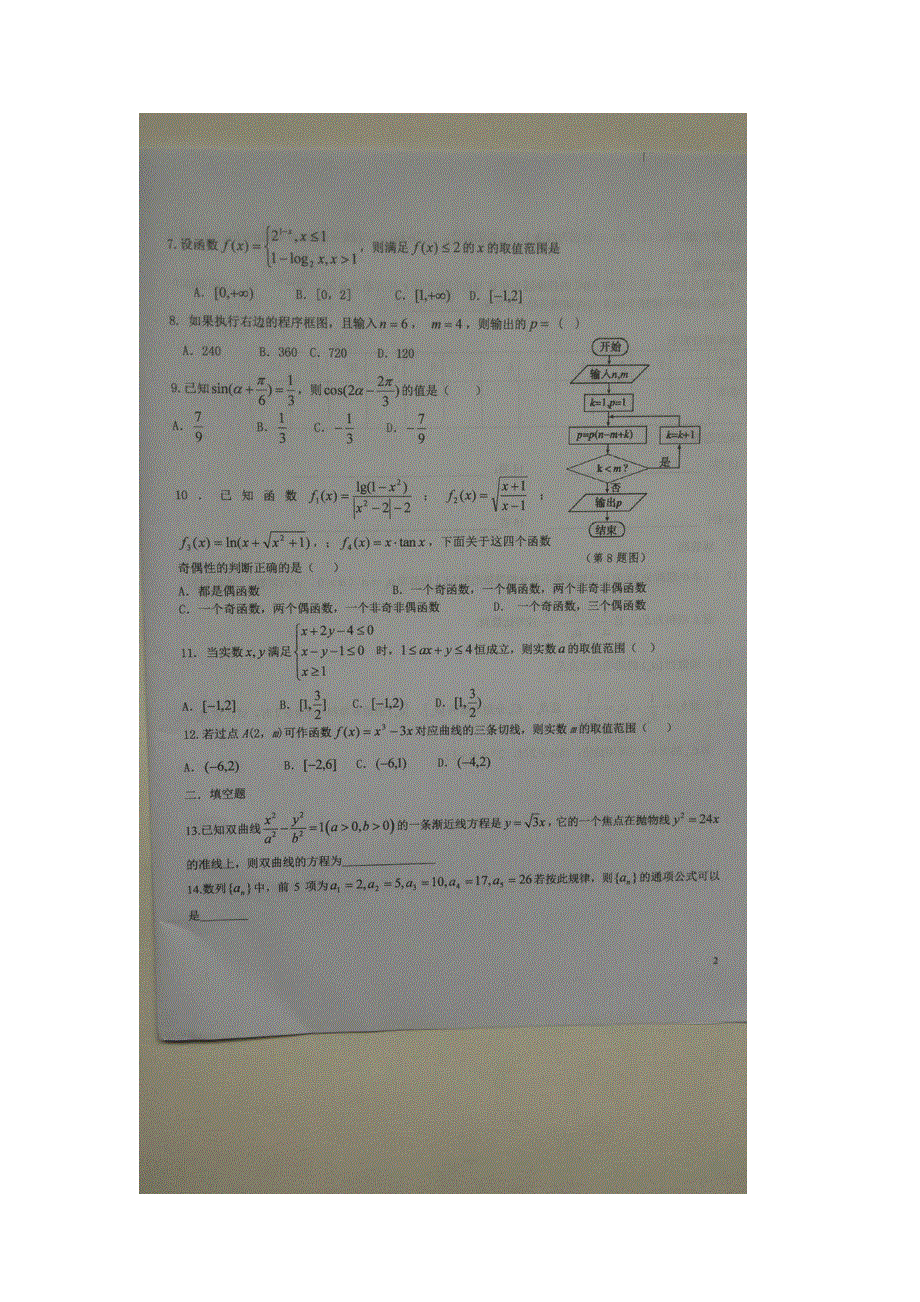 7.设函数 f(x) = { 2^{1-x}, x ≤ 1
1 − log₂ x, x > 1 ，则满足 f(x) ≤ 2 的 x 的取值范围是
A．[0,+∞) B．[0，2] C．[1,+∞) D．[−1,2]
8．如果执行右边的程序框图，且输入 n = 6， m = 4，则输出的 p = （ ）
A．240 B．360 C．720 D．120
开始
输入n,m
k=1,p=1
p=p(n-m+k)
k=k+1
k<m?
是
否
输出p
结束
（第 8 题图）
9.已知 sin(α + π/6) = 1/3，则 cos(2α − 2π/3) 的值是（ ）
A．7/9 B．1/3 C．−1/3 D．−7/9
10 ． 已 知 函 数 f₁(x) = lg(1−x²)/(|x²−2|−2) ； f₂(x) = √((x+1)/(x−1)) ；
f₃(x) = ln(x + √(x²+1))，；f₄(x) = x·tan x，下面关于这四个函数
奇偶性的判断正确的是（ ）
A．都是偶函数 B．一个奇函数，一个偶函数，两个非奇非偶函数
C．一个奇函数，两个偶函数，一个非奇非偶函数 D． 一个奇函数，三个偶函数
11．当实数 x, y 满足 { x + 2y − 4 ≤ 0
x − y − 1 ≤ 0
x ≥ 1 时，1 ≤ ax + y ≤ 4 恒成立，则实数 a 的取值范围（ ）
A．[−1,2] B．[1, 3/2] C．[−1,2) D．[1, 3/2)
12.若过点 A(2，m)可作函数 f(x) = x³ − 3x 对应曲线的三条切线，则实数 m 的取值范围（ ）
A．(−6,2) B．[−2,6] C．(−6,1) D．(−4,2)
二．填空题
13.已知双曲线 x²/a² − y²/b² = 1(a > 0, b > 0) 的一条渐近线方程是 y = √3x，它的一个焦点在抛物线 y² = 24x
的准线上，则双曲线的方程为________
14.数列{aₙ}中，前 5 项为 a₁ = 2, a₂ = 5, a₃ = 10, a₄ = 17, a₅ = 26 若按此规律，则{aₙ}的通项公式可以
是______
2